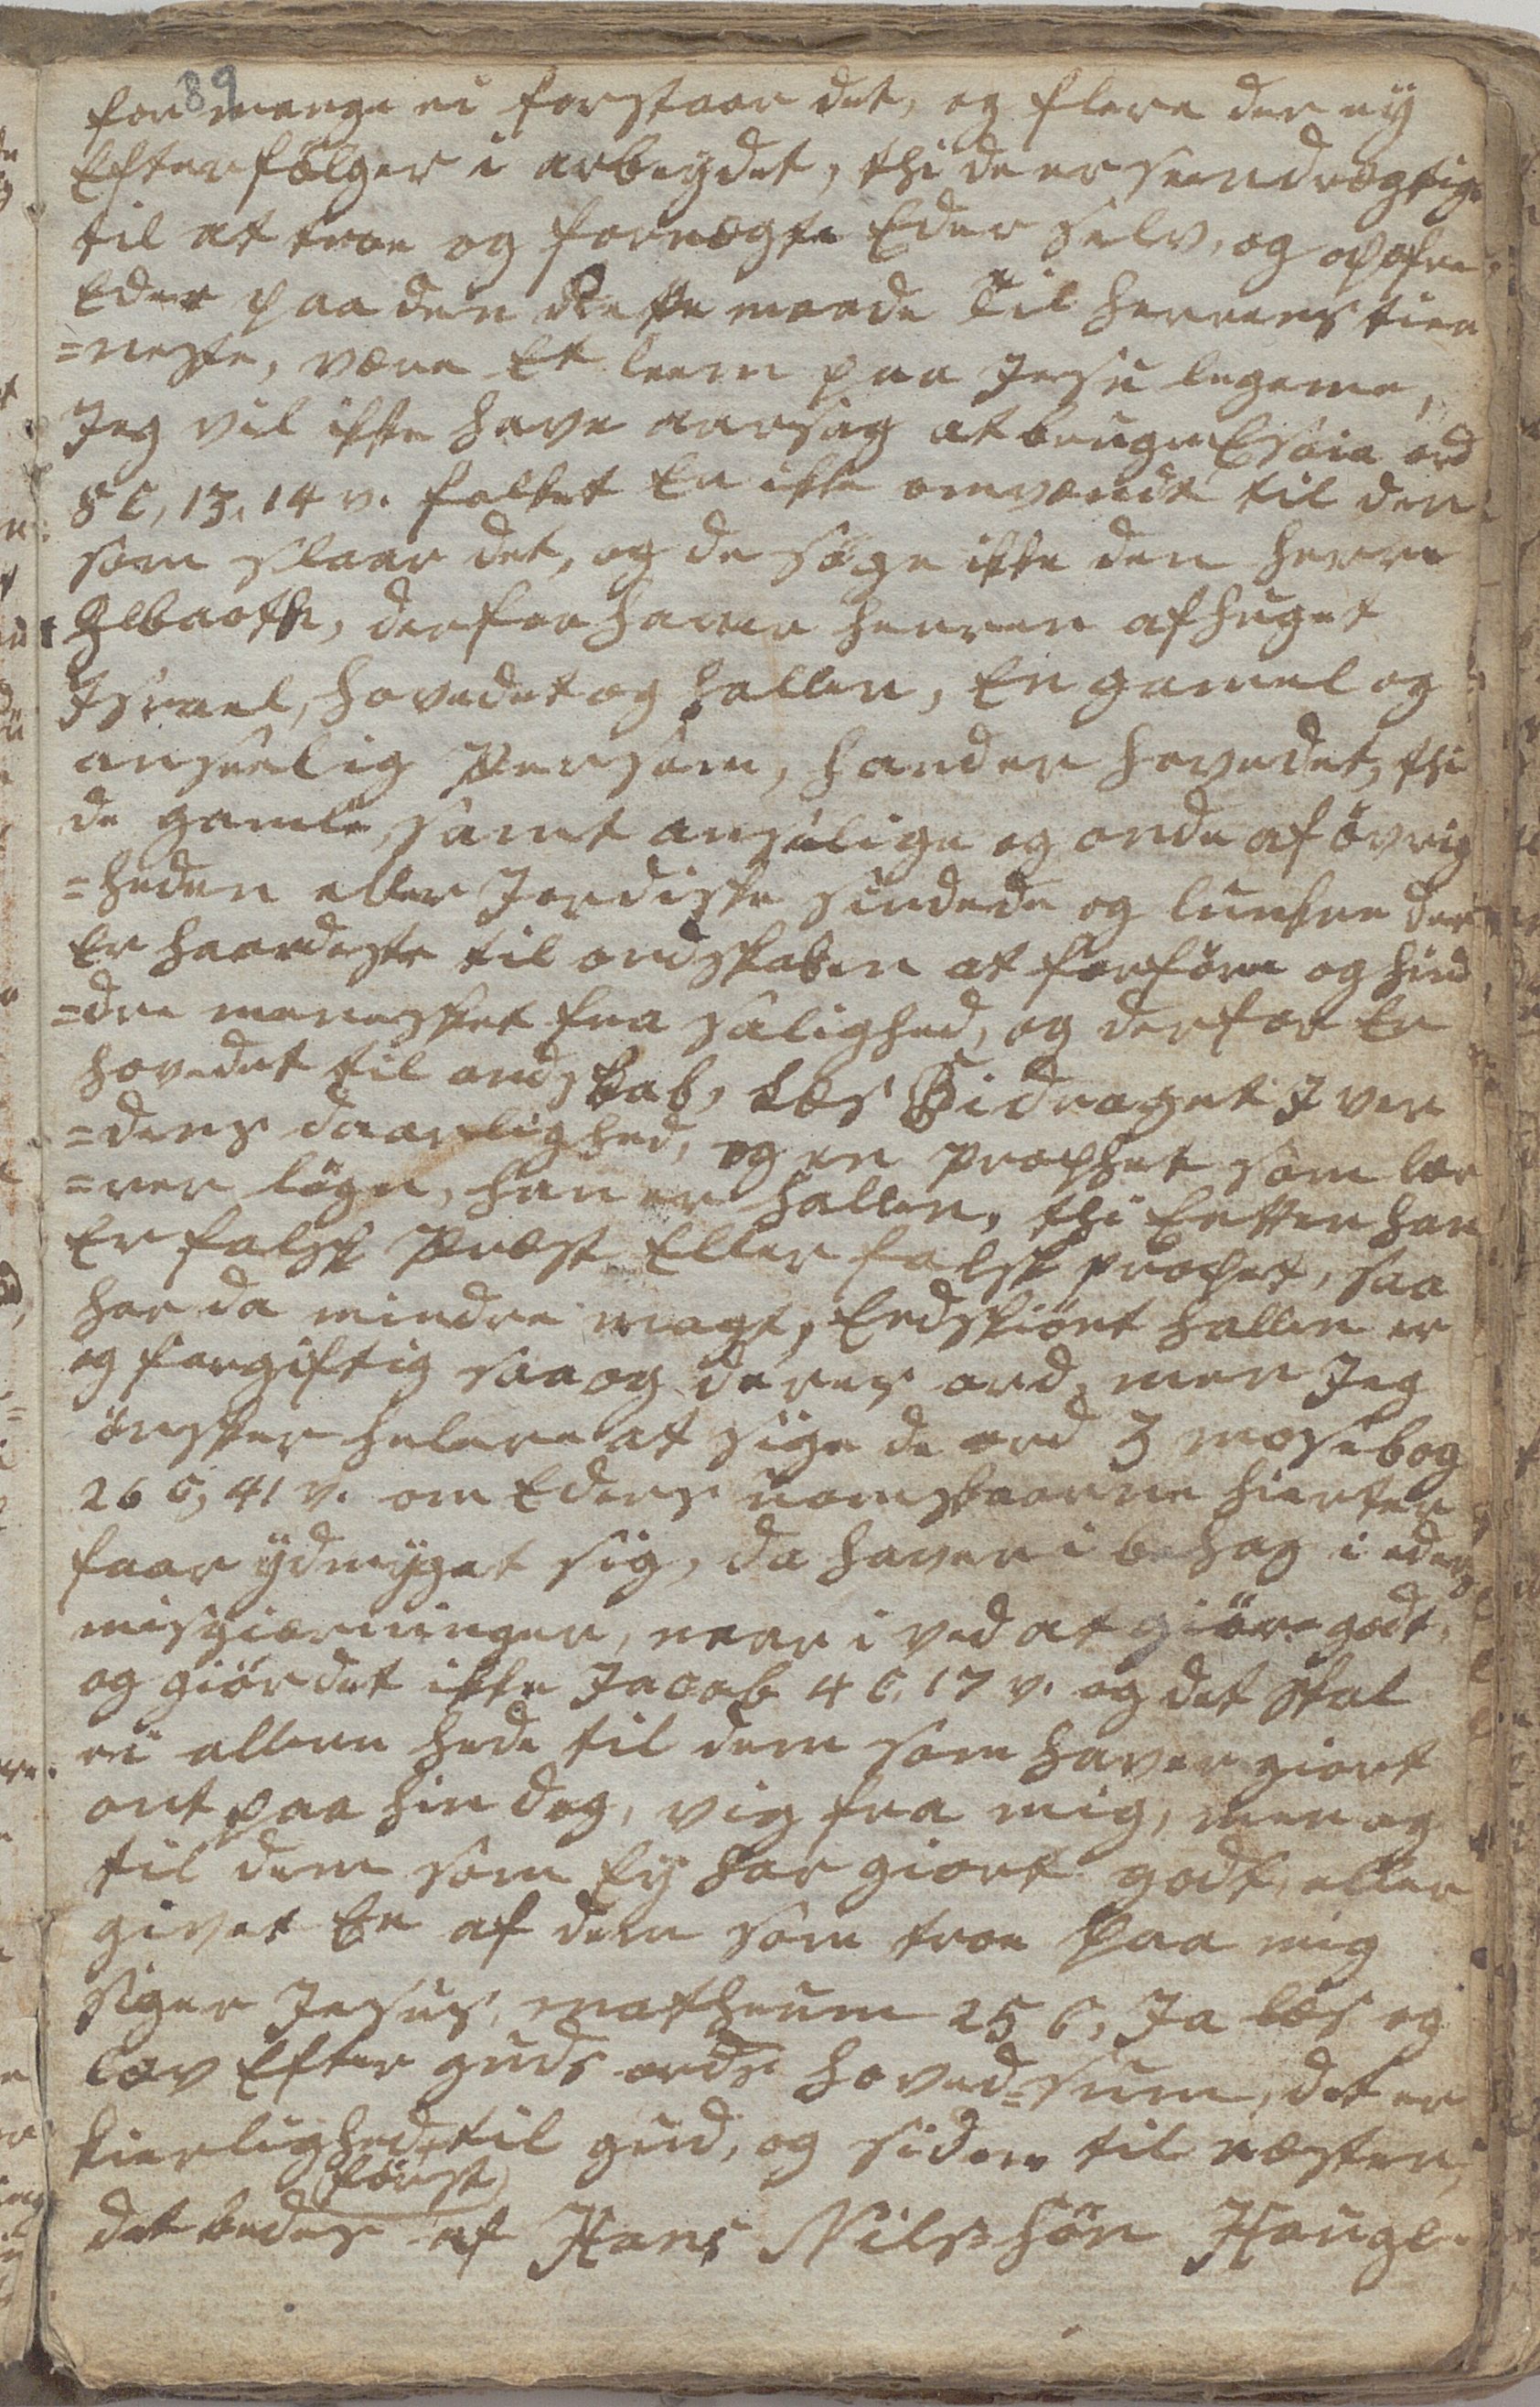 89
for mange ei forstaar det, og flere der ey
Efterfölger i arbeydet, thi de er seendrægtige
til at troe og fornægte Eder selv, og opofre
Eder paa den Rette maade Til herrens tiene
=neste, være Et leem paa Jesu legeme,
Jeg vil ikke have aarsag at bruge Esaia ord
8 C, 13, 14 v. folket Er ikke omvendt til den
som slaar det, og de söge ikke den herre
Zebaoth, derfor haver herren afhuget
Israel, hovedet og hallen, En gamel og
anseelig Person, hand er hovedet, thi
de gamle, samt anselige og onde af övrig
=heden eller Jordiske sindede og lunkne der
Er haardeste til ondskaben at forföre og hind
=dre menesket fra salighed, og derfor Er
hovedet til ondskab, Læs Bidraget I ver
=dens daarlighed, og en prophet som lær
=rer lögn, han er hallen, thi Enten han
Er falsk Præst Eller falsk prophet, saa
har da mindre magt, Endskiönt hallen er
og forgiftig saa og deres ord, men Jeg
önsker helere at sige de ord 3 mosebog
26 C, 41 v. om Eders uomskaarne hierter
faar ydmyget sig, da haver i behag i eders
misgierninger, naar i ved at giöre godt,
og giör det ikke Jacob 4 C, 17 v. og det skal
ei allene hede til dem som haver giort
ont paa hin dag, vig fra mig, men og
til dem som Ey har giort godt, eller
givet En af dem som troe paa mig
siger Jesus, matheum 25 C, Ja læs og
lev Efter guds ords hoved=sum, det er
kierlighed til gud, og siden til næsten,
först
det bedes af Hans Nilsshön Hauge